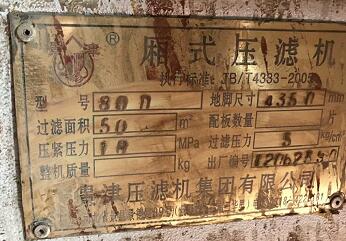 ® 厢式压滤机
执行标准:JB/T4333-2005
型号 800 地脚尺寸 4350 mm
过滤面积 50 m² 配板数量 片
压紧压力 18 MPa 过滤压力 5
整机质量 kg 出厂编号
粤津压滤机集团有限公司